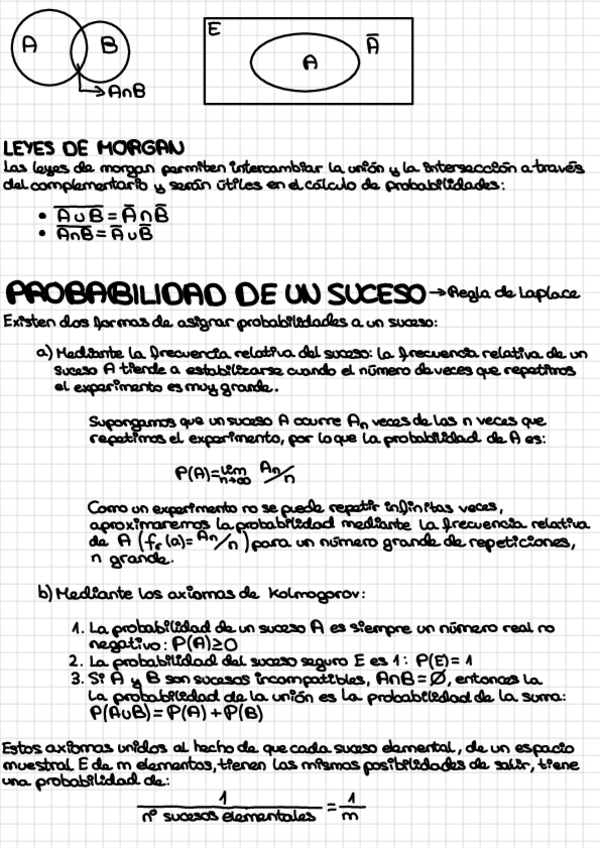 A B
A∩B
E
A
A̅
LEYES DE MORGAN
Las leyes de morgan permiten intercambiar la unión y la intersección a través
del complementario y serán útiles en el cálculo de probabilidades:
• \overline{A∪B} = A̅∩B̅
• \overline{A∩B} = A̅∪B̅
PROBABILIDAD DE UN SUCESO → Regla de Laplace
Existen dos formas de asignar probabilidades a un suceso:
a) Mediante la frecuencia relativa del suceso: la frecuencia relativa de un
suceso A tiende a estabilizarse cuando el número de veces que repetimos
el experimento es muy grande.
Supongamos que un suceso A ocurre Aₙ veces de las n veces que
repetimos el experimento, por lo que la probabilidad de A es:
P(A)=lim Aₙ/n
n→∞
Como un experimento no se puede repetir infinitas veces,
aproximaremos la probabilidad mediante la frecuencia relativa
de A (fᵣ(a)=Aₙ/n) para un número grande de repeticiones,
n grande.
b) Mediante los axiomas de Kolmogorov:
1. La probabilidad de un suceso A es siempre un número real no
negativo: P(A)≥0
2. La probabilidad del suceso seguro E es 1: P(E)=1
3. Si A y B son sucesos incompatibles, A∩B=Ø, entonces la
la probabilidad de la unión es la probabilidad de la suma:
P(A∪B)=P(A)+P(B)
Estos axiomas unidos al hecho de que cada suceso elemental, de un espacio
muestral E de m elementos, tienen las mismas posibilidades de salir, tiene
una probabilidad de:
1 / nº sucesos elementales = 1/m